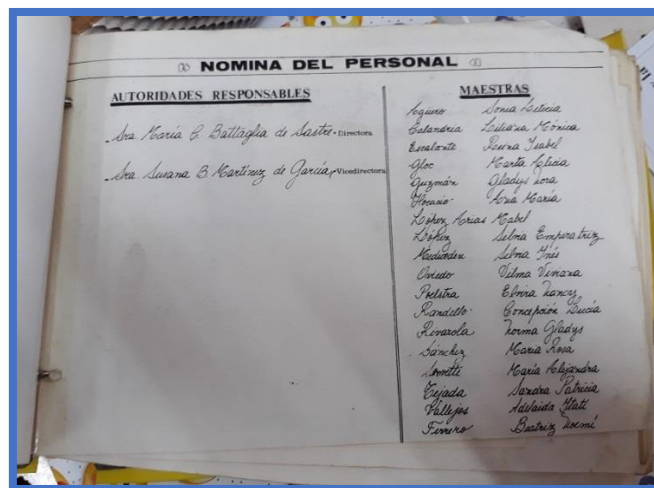 NOMINA DEL PERSONAL
AUTORIDADES RESPONSABLES
Sra María C. Battaglia de Sastre - Directora
Sra Susana B. Martínez de García - Vicedirectora
MAESTRAS
Agüero Sonia Leticia
Calandria Liliana Mónica
Escalante Isabel
Gloc Marta Alicia
Guzmán Gladys Nora
Horacio Ana María
López Arias Mabel
López Selma Emperatriz
Selva Inés
Oviedo Vilma Viviana
Elvira Nancy
Randello Concepción Lucía
Rivarola Norma Gladys
Sánchez María Rosa
María Alejandra
Tejada Sandra Patricia
Vallejos Adelaida Itatí
Ferrero Beatriz Noemí